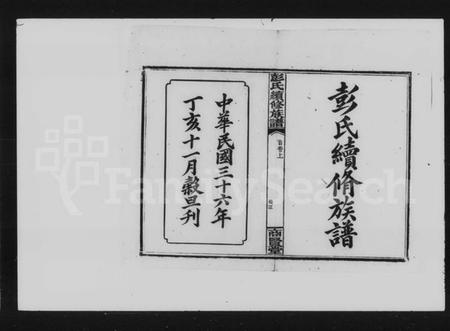 彭氏續脩族譜
彭氏續修族譜
首卷上
商賢堂
中華民國三十六年
丁亥十一月穀旦刊
FamilySearch